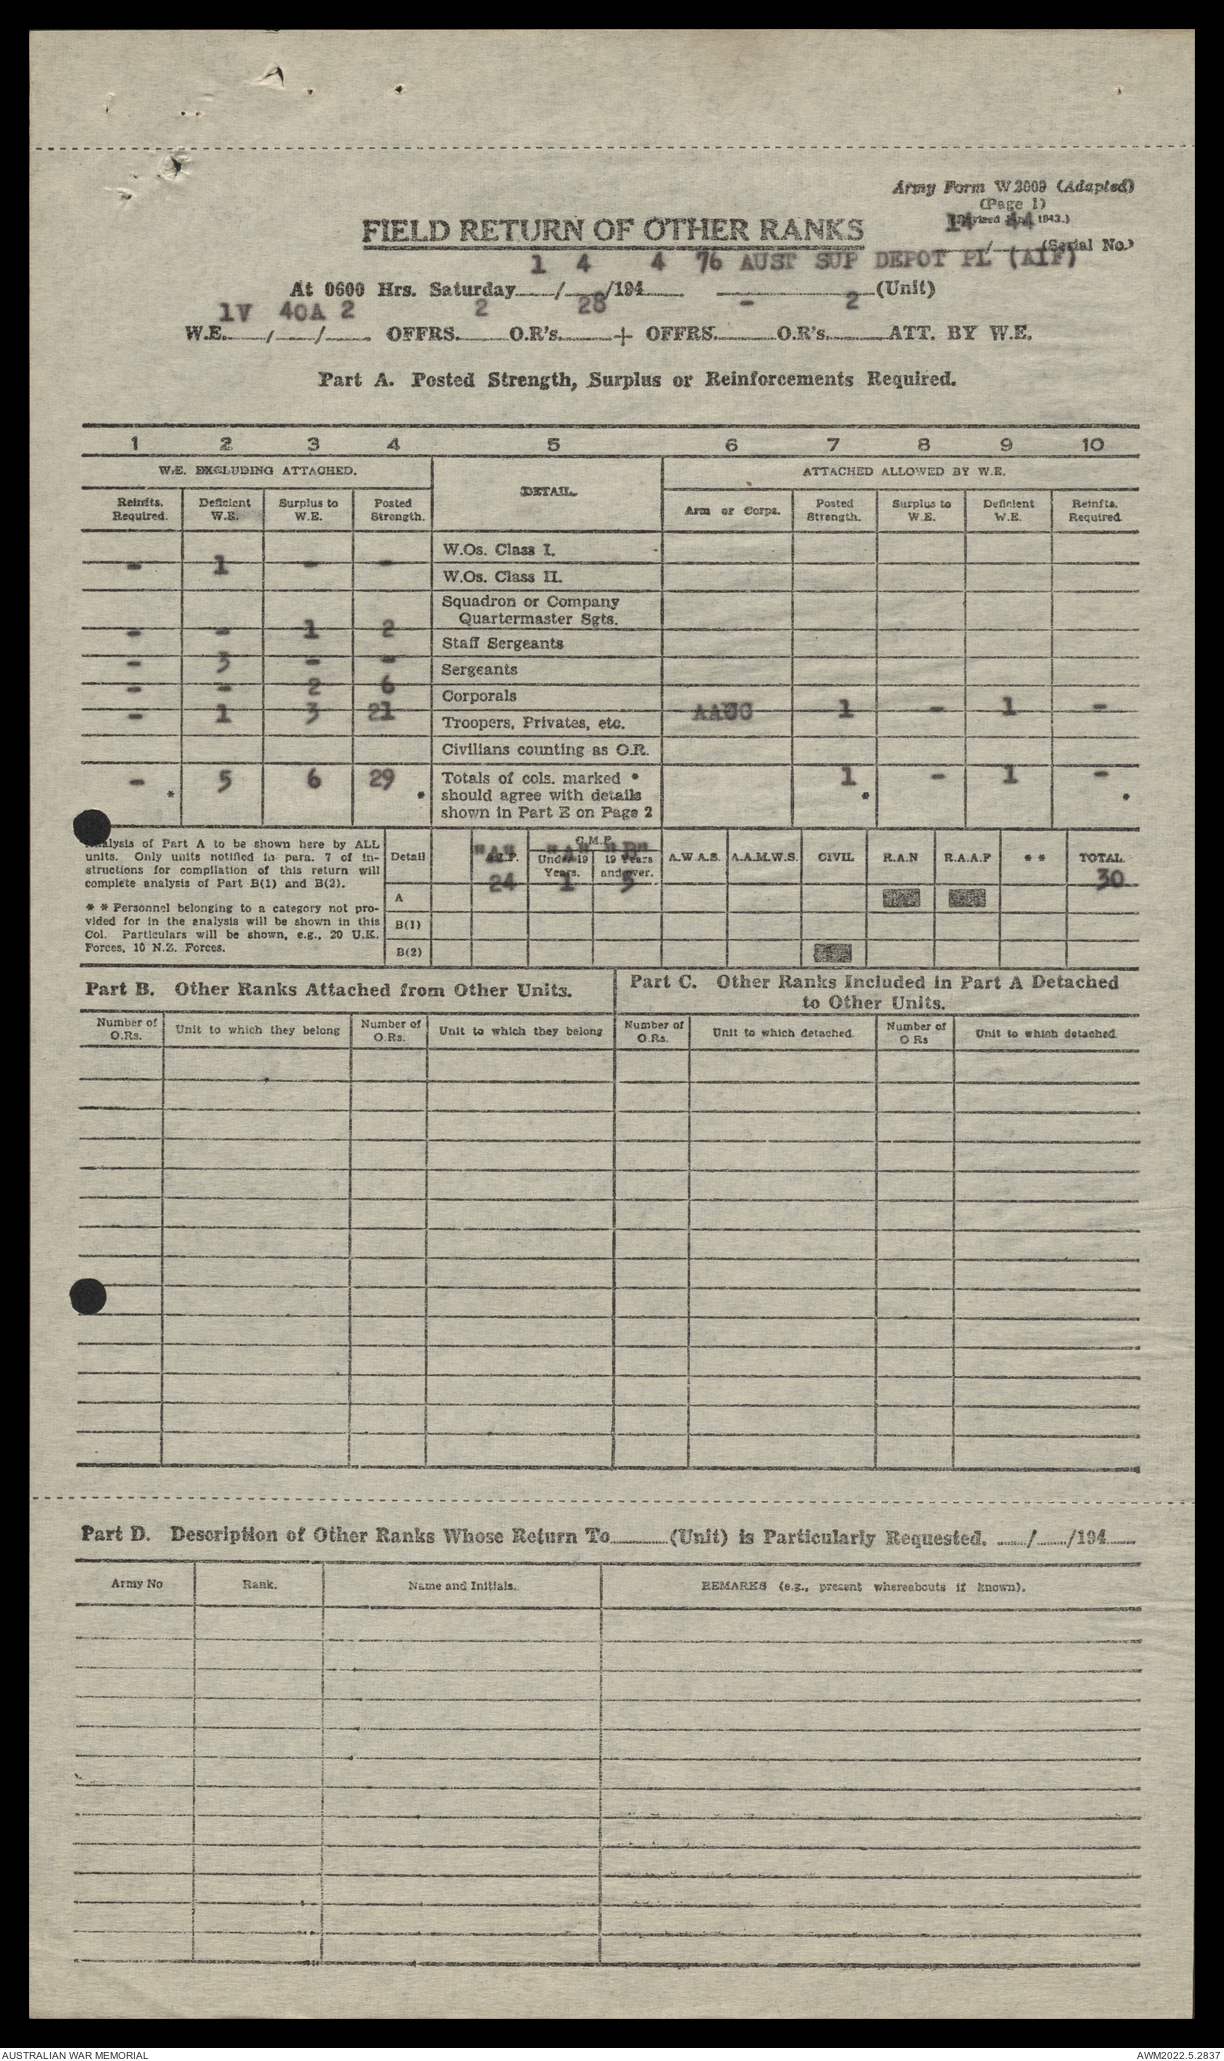 Army Form W.3009 (Adapted)
(Page 1)
14 44
FIELD RETURN OF OTHER RANKS
/ (Serial No.)
1 4 4 76 AUST SUP DEPOT PL (AIF)
At 0600 Hrs. Saturday / /194 (Unit)
1V 40A 2 2 28 - 2
W.E. / / OFFRS. O.R's. + OFFRS. O.R's. ATT. BY W.E.
Part A. Posted Strength, Surplus or Reinforcements Required.
1 2 3 4 5 6 7 8 9 10
W.E. EXCLUDING ATTACHED. DETAIL. ATTACHED ALLOWED BY W.E.
Reinfts. Required. Deficient W.E. Surplus to W.E. Posted Strength. Arm or Corps. Posted Strength. Surplus to W.E. Deficient W.E. Reinfts. Required
W.Os. Class I.
- 1 - -
W.Os. Class II.
Squadron or Company
Quartermaster Sgts.
- - 1 2
Staff Sergeants
- 3 - -
Sergeants
- - 2 6
Corporals
- 1 3 21 Troopers, Privates, etc. 1 - 1 -
Civilians counting as O.R.
- 5 6 29 Totals of cols. marked * 1 - 1 -
* * should agree with details * *
shown in Part E on Page 2
Analysis of Part A to be shown here by ALL
units. Only units notified in para. 7 of in-
structions for compilation of this return will
complete analysis of Part B(1) and B(2).
* * Personnel belonging to a category not pro-
vided for in the analysis will be shown in this
Col. Particulars will be shown, e.g., 20 U.K.
Forces, 10 N.Z. Forces.
C.M.F.
"A" "A" "B"
Detail A.I.F. Under 19 Years. 19 Years and over. A.W.A.S. A.A.M.W.S. CIVIL R.A.N R.A.A.F * * TOTAL.
24 1 5 30
A
B(1)
B(2)
Part B. Other Ranks Attached from Other Units.
Part C. Other Ranks Included in Part A Detached
to Other Units.
Number of O.Rs. Unit to which they belong Number of O.Rs. Unit to which they belong Number of O.Rs. Unit to which detached. Number of O Rs Unit to which detached.
Part D. Description of Other Ranks Whose Return To (Unit) is Particularly Requested. / /194
Army No Rank. Name and Initials. REMARKS (e.g., present whereabouts if known).
AUSTRALIAN WAR MEMORIAL AWM2022.5.2837